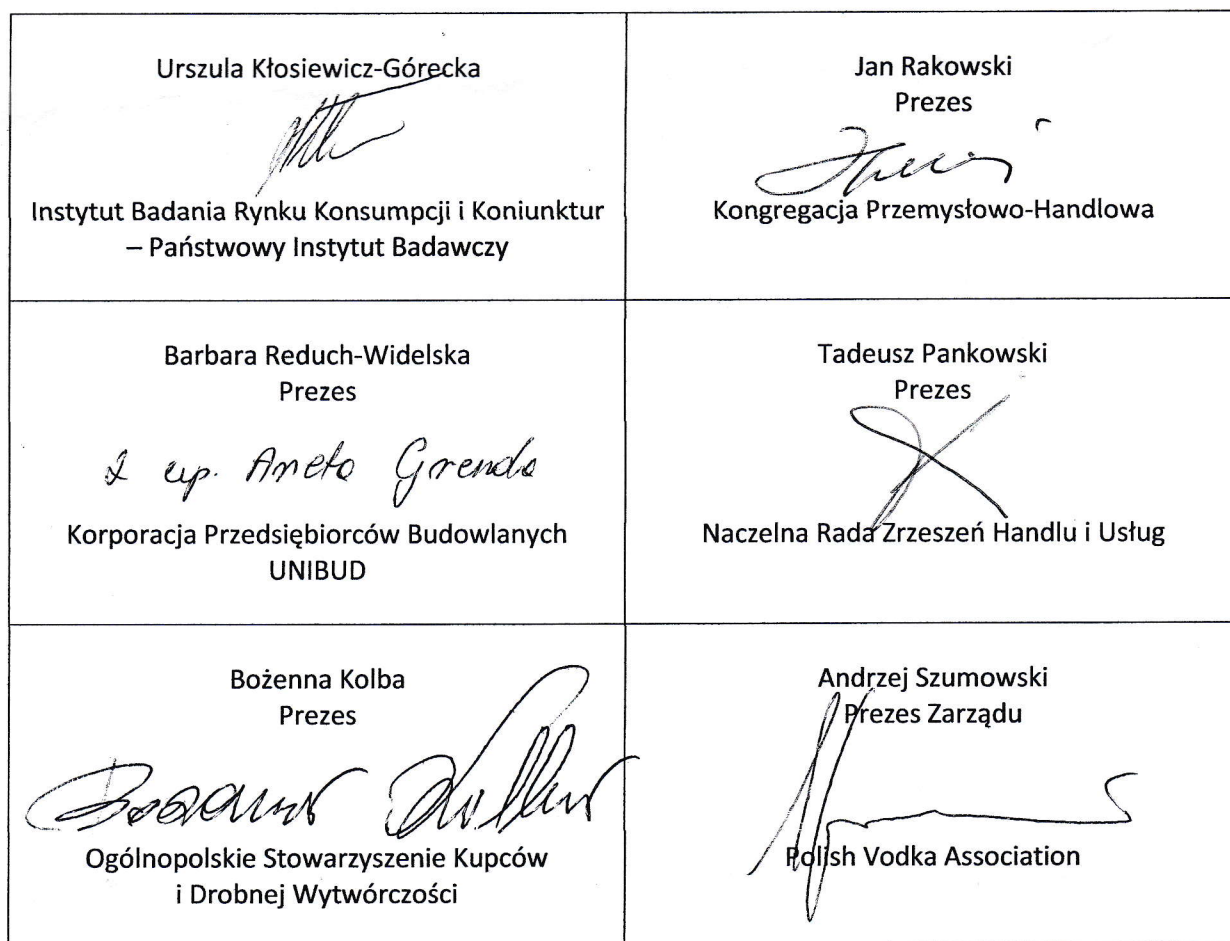 Urszula Kłosiewicz-Górecka
Instytut Badania Rynku Konsumpcji i Koniunktur
– Państwowy Instytut Badawczy
Jan Rakowski
Prezes
Kongregacja Przemysłowo-Handlowa
Barbara Reduch-Widelska
Prezes
z up. Aneta Grenda
Korporacja Przedsiębiorców Budowlanych
UNIBUD
Tadeusz Pankowski
Prezes
Naczelna Rada Zrzeszeń Handlu i Usług
Bożenna Kolba
Prezes
Ogólnopolskie Stowarzyszenie Kupców
i Drobnej Wytwórczości
Andrzej Szumowski
Prezes Zarządu
Polish Vodka Association